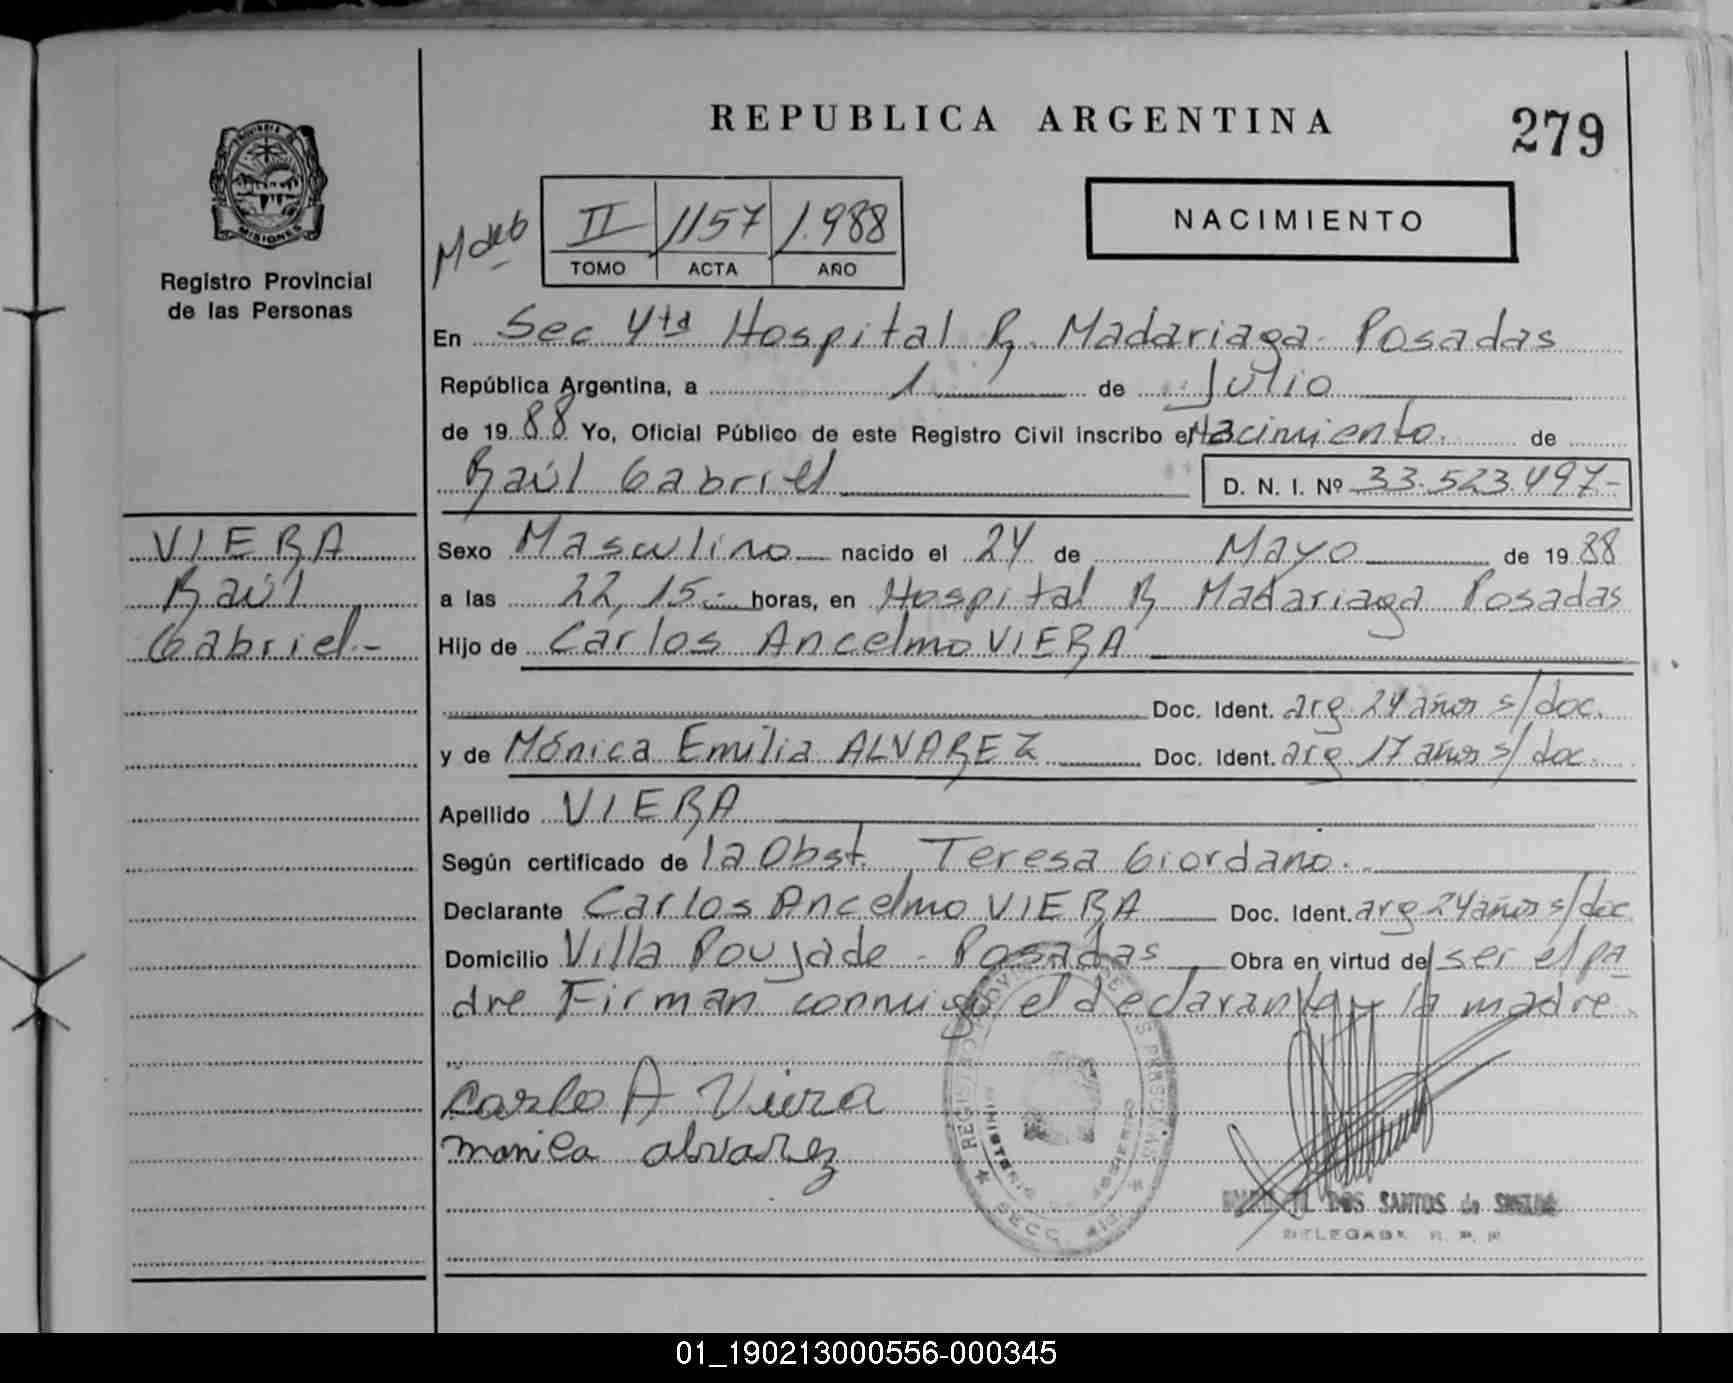 REPUBLICA ARGENTINA
279
PROVINCIA DE
MISIONES
Registro Provincial
de las Personas
II 1157 1.988
TOMO ACTA AÑO
NACIMIENTO
En Sec 4ta Hospital R. Madariaga - Posadas
República Argentina, a 1 de Julio
de 1988 Yo, Oficial Público de este Registro Civil inscribo el Nacimiento. de
Raúl Gabriel D. N. I. Nº 33.523.497-
VIERA
Raúl
Gabriel.-
Sexo Masculino nacido el 24 de Mayo de 1988
a las 22,15.- horas, en Hospital R Madariaga Posadas
Hijo de Carlos Ancelmo VIERA
Doc. Ident. arg. 24 años s/doc.
y de Mónica Emilia ALVAREZ Doc. Ident. arg. 17 años s/doc.
Apellido VIERA
Según certificado de la Obst. Teresa Giordano.
Declarante Carlos Ancelmo VIERA Doc. Ident. arg 24 años s/doc
Domicilio Villa Poujade - Posadas Obra en virtud de ser el pa
dre Firman conmigo el declarante y la madre.
Carlo A Viera
monica alvarez
DOS SANTOS de
DELEGADA R. P. P.
01_190213000556-000345